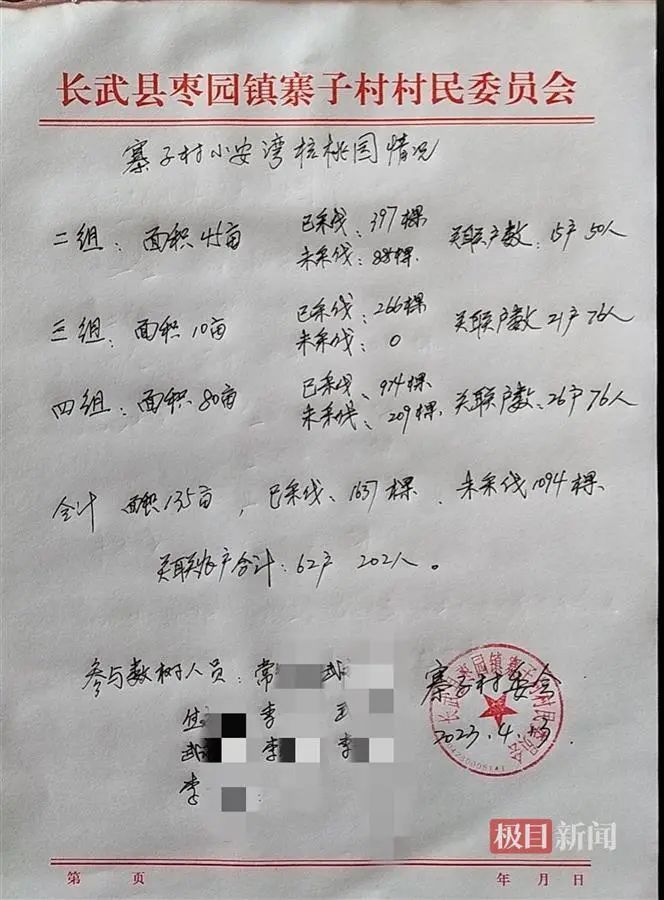 长武县枣园镇寨子村村民委员会
寨子村小安湾核桃园情况
二组：面积45亩 已采伐：397棵 未采伐：885棵 关联户数：15户 50人
三组：面积10亩 已采伐：266棵 未采伐：0 关联户数21户76人
四组：面积80亩 已采伐：974棵 未采伐：209棵 关联户数：26户76人
合计 面积135亩，已采伐：1637棵. 未采伐1094棵
关联农户合计：62户 202人。
参与数树人员：常 武
李 王
武 李 李
李
寨子村委会
2023.4.
长武县枣园镇寨子村村民委员会
极目新闻
第 页 年 月 日